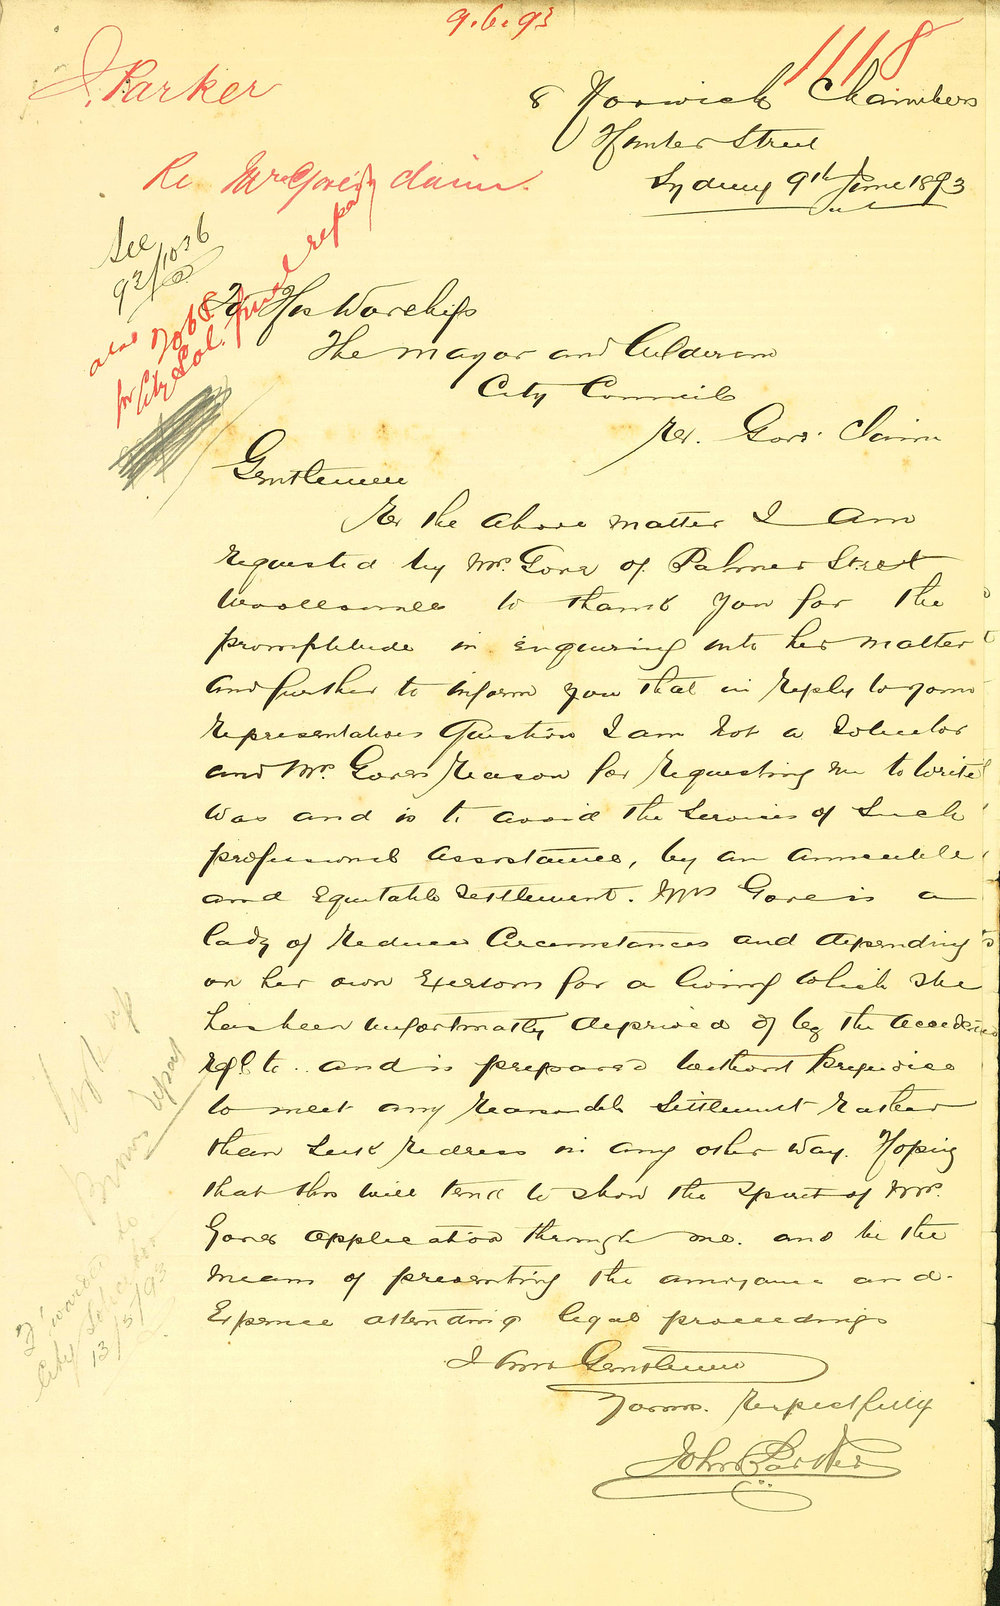 9.6.93
1118
J. Parker
8 Norwich Chambers
Hunter Street
Sydney 9th June 1893
Re Mrs Gore's claim.
See
92/1036
also 706
for City Sol. final report
To His Worship
The Mayor and Aldermen
City Council
Re. Gores Claim
Gentlemen
Re the above matter I am
requested by Mrs. Gore of Palmer Street
Woolloomooloo to thank you for the
promptitude in enquiring into her matter
and further to inform you that in reply to your
representatives question I am not a Solicitor
and Mrs. Gores reason for requesting me to write
was and is to avoid the services of such
professional assistance, by an amicable
and Equitable settlement. Mrs Gore is a
lady of reduced Circumstances and depending
on her own Exertions for a living which she
has been unfortunately deprived of by the accident
and is prepared without prejudice
to meet any reasonable settlement rather
than seek redress in any other way. Hoping
that this will tend to show the spirit of Mrs.
Gores application through me. and be the
means of preventing the annoyance and
Expense attending legal proceedings
I am Gentlemen
Yours. Respectfully
John Parker
report
Forwarded to
City Solicitor
13/5/93